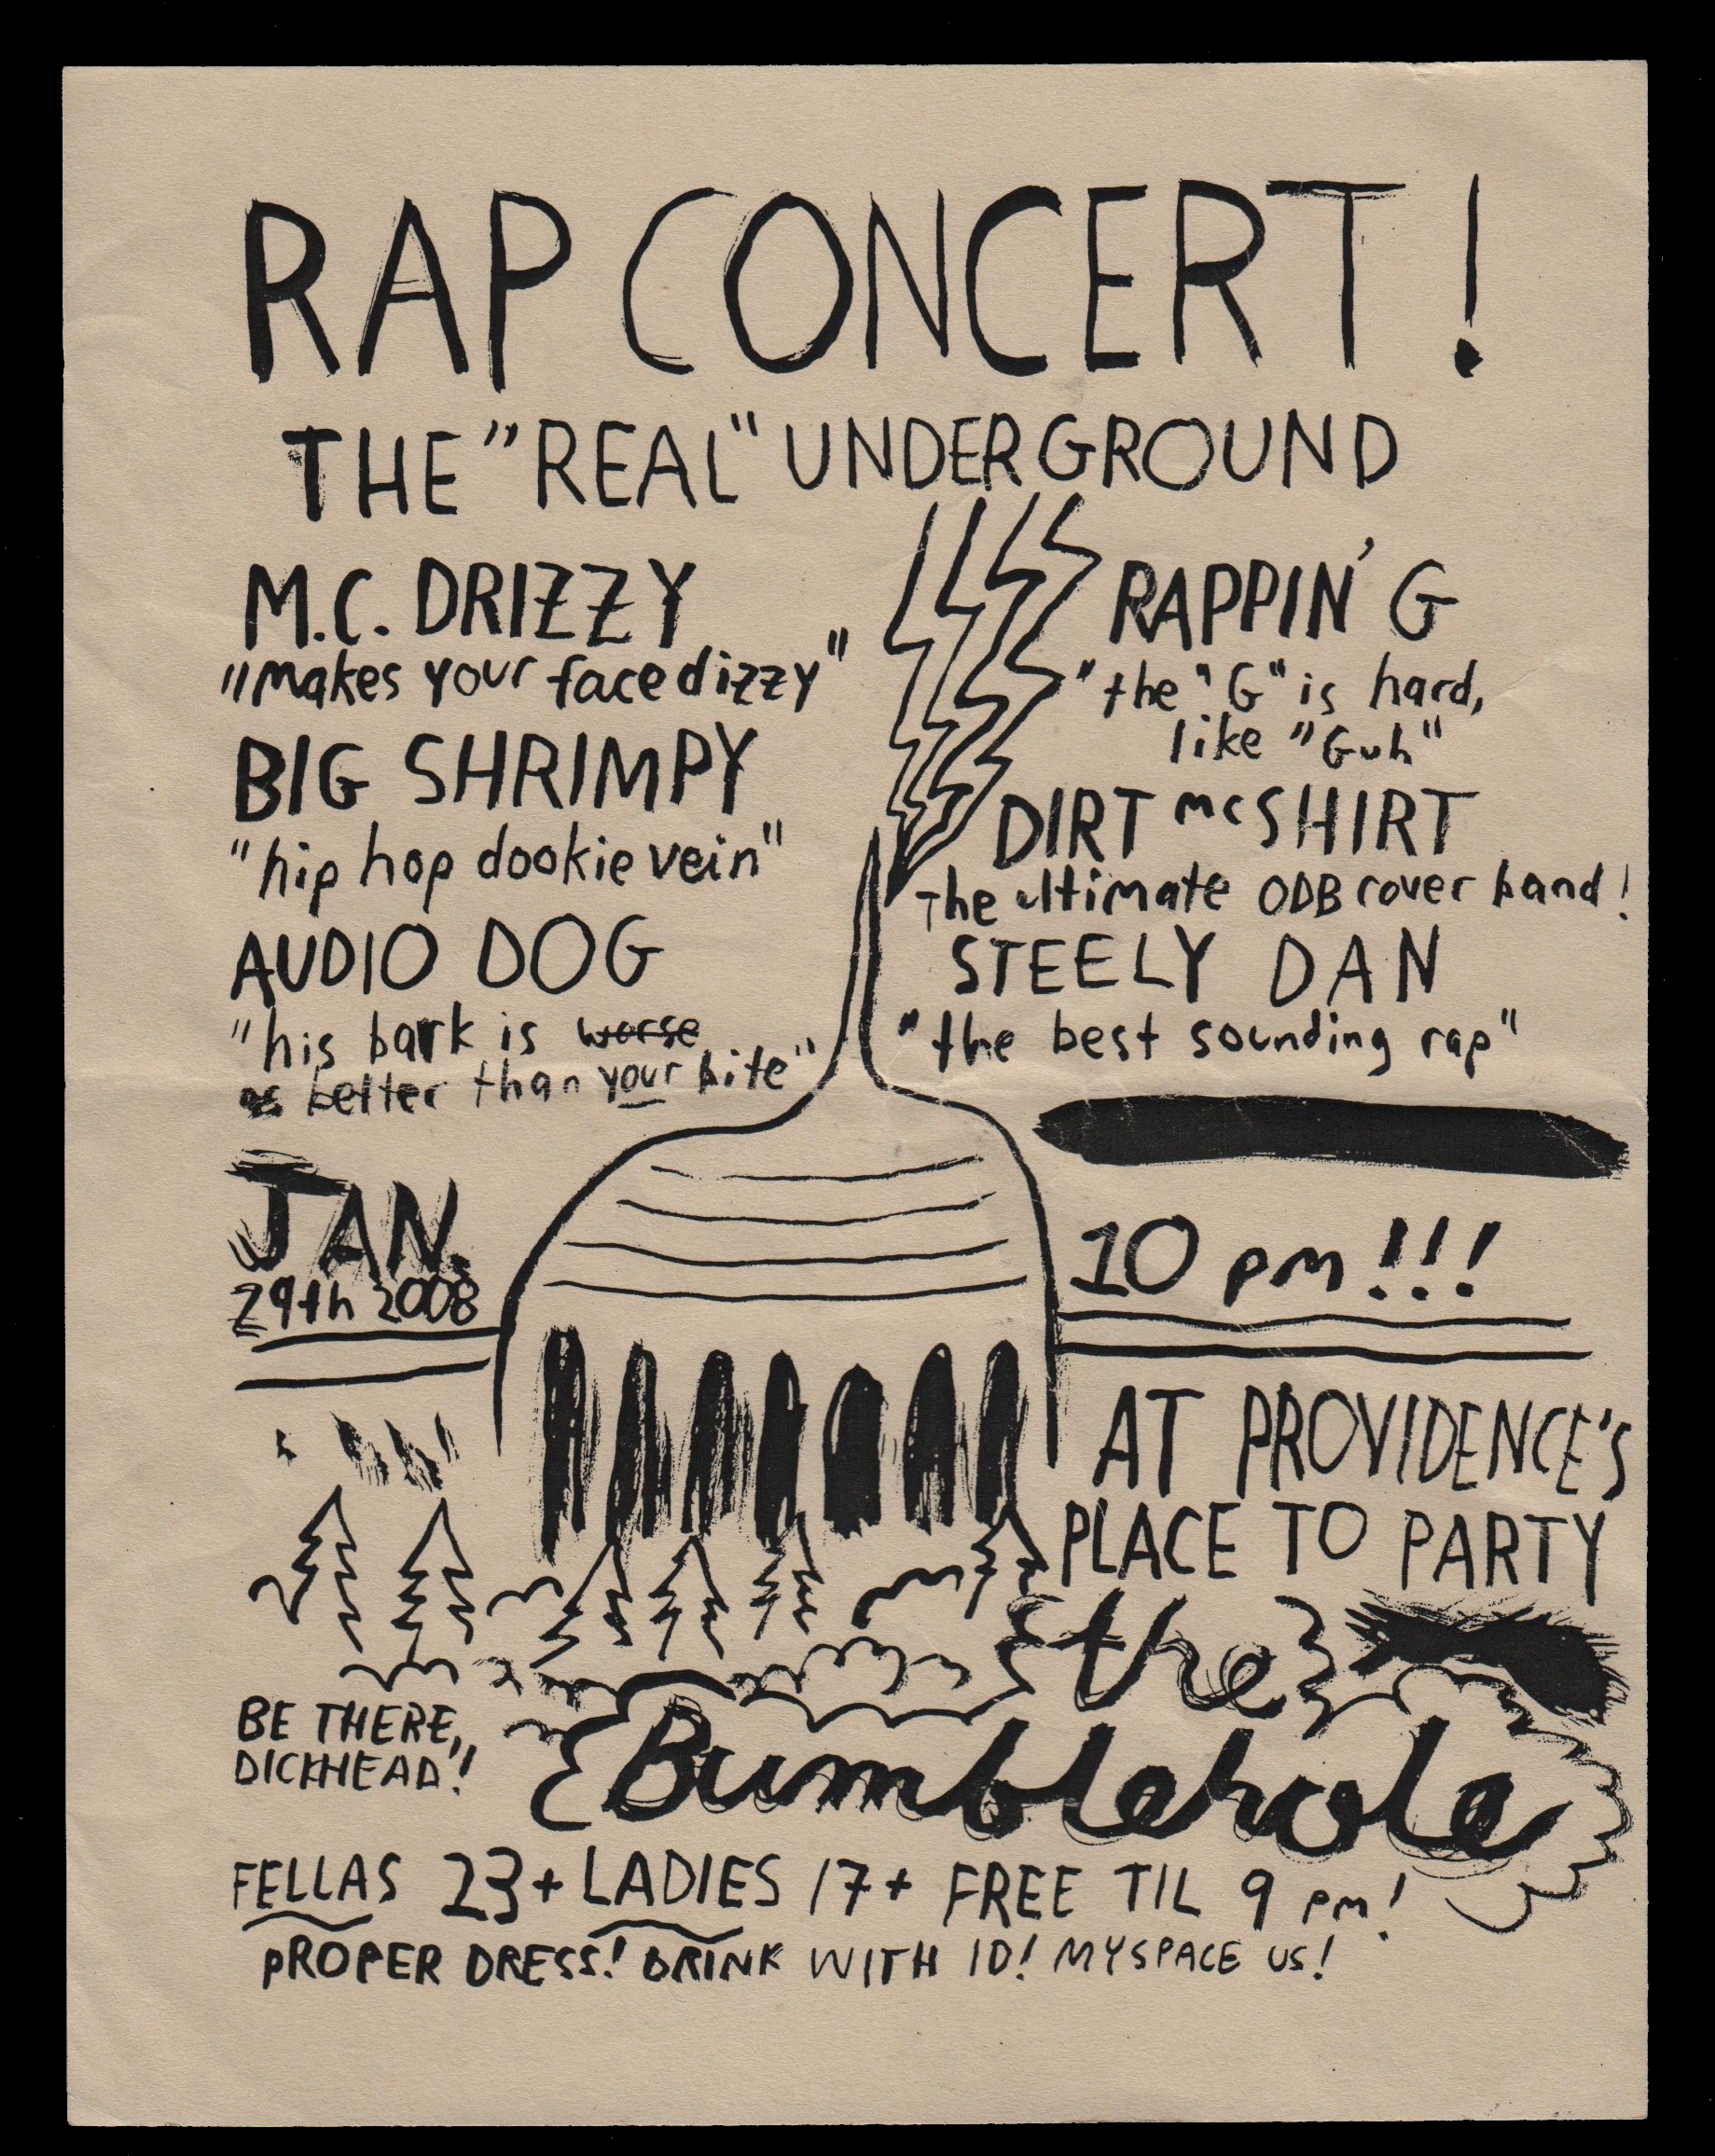 RAP CONCERT!
THE "REAL" UNDERGROUND
M.C. DRIZZY
"makes your face dizzy"
BIG SHRIMPY
"hip hop dookie vein"
AUDIO DOG
"his bark is worse
as better than your bite"
RAPPIN' G
"the "G" is hard,
like "Guh"
DIRT mcSHIRT
The ultimate ODB cover band!
STEELY DAN
"the best sounding rap"
JAN.
29th 2008
10 pm!!!
AT PROVIDENCE'S
PLACE TO PARTY
the
Bumblehole
BE THERE,
DICKHEAD"!
FELLAS 23+ LADIES 17+ FREE TIL 9 pm!
PROPER DRESS! DRINK WITH ID! MYSPACE US!